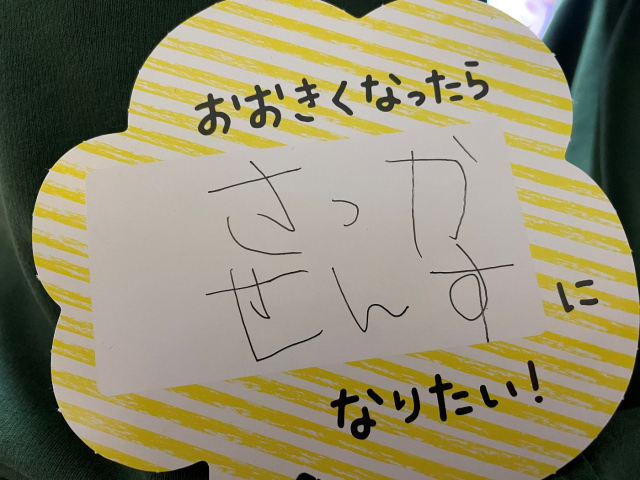 おおきくなったら
さっか
せんす
に
なりたい!